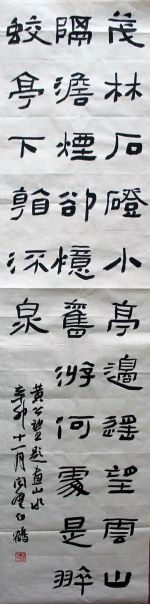 茂林石磴小亭邊遥望雲山
隔澹煙卻憶舊游何處是翠
蛟亭下看流泉
黄公望題畫山水
辛卯十一月